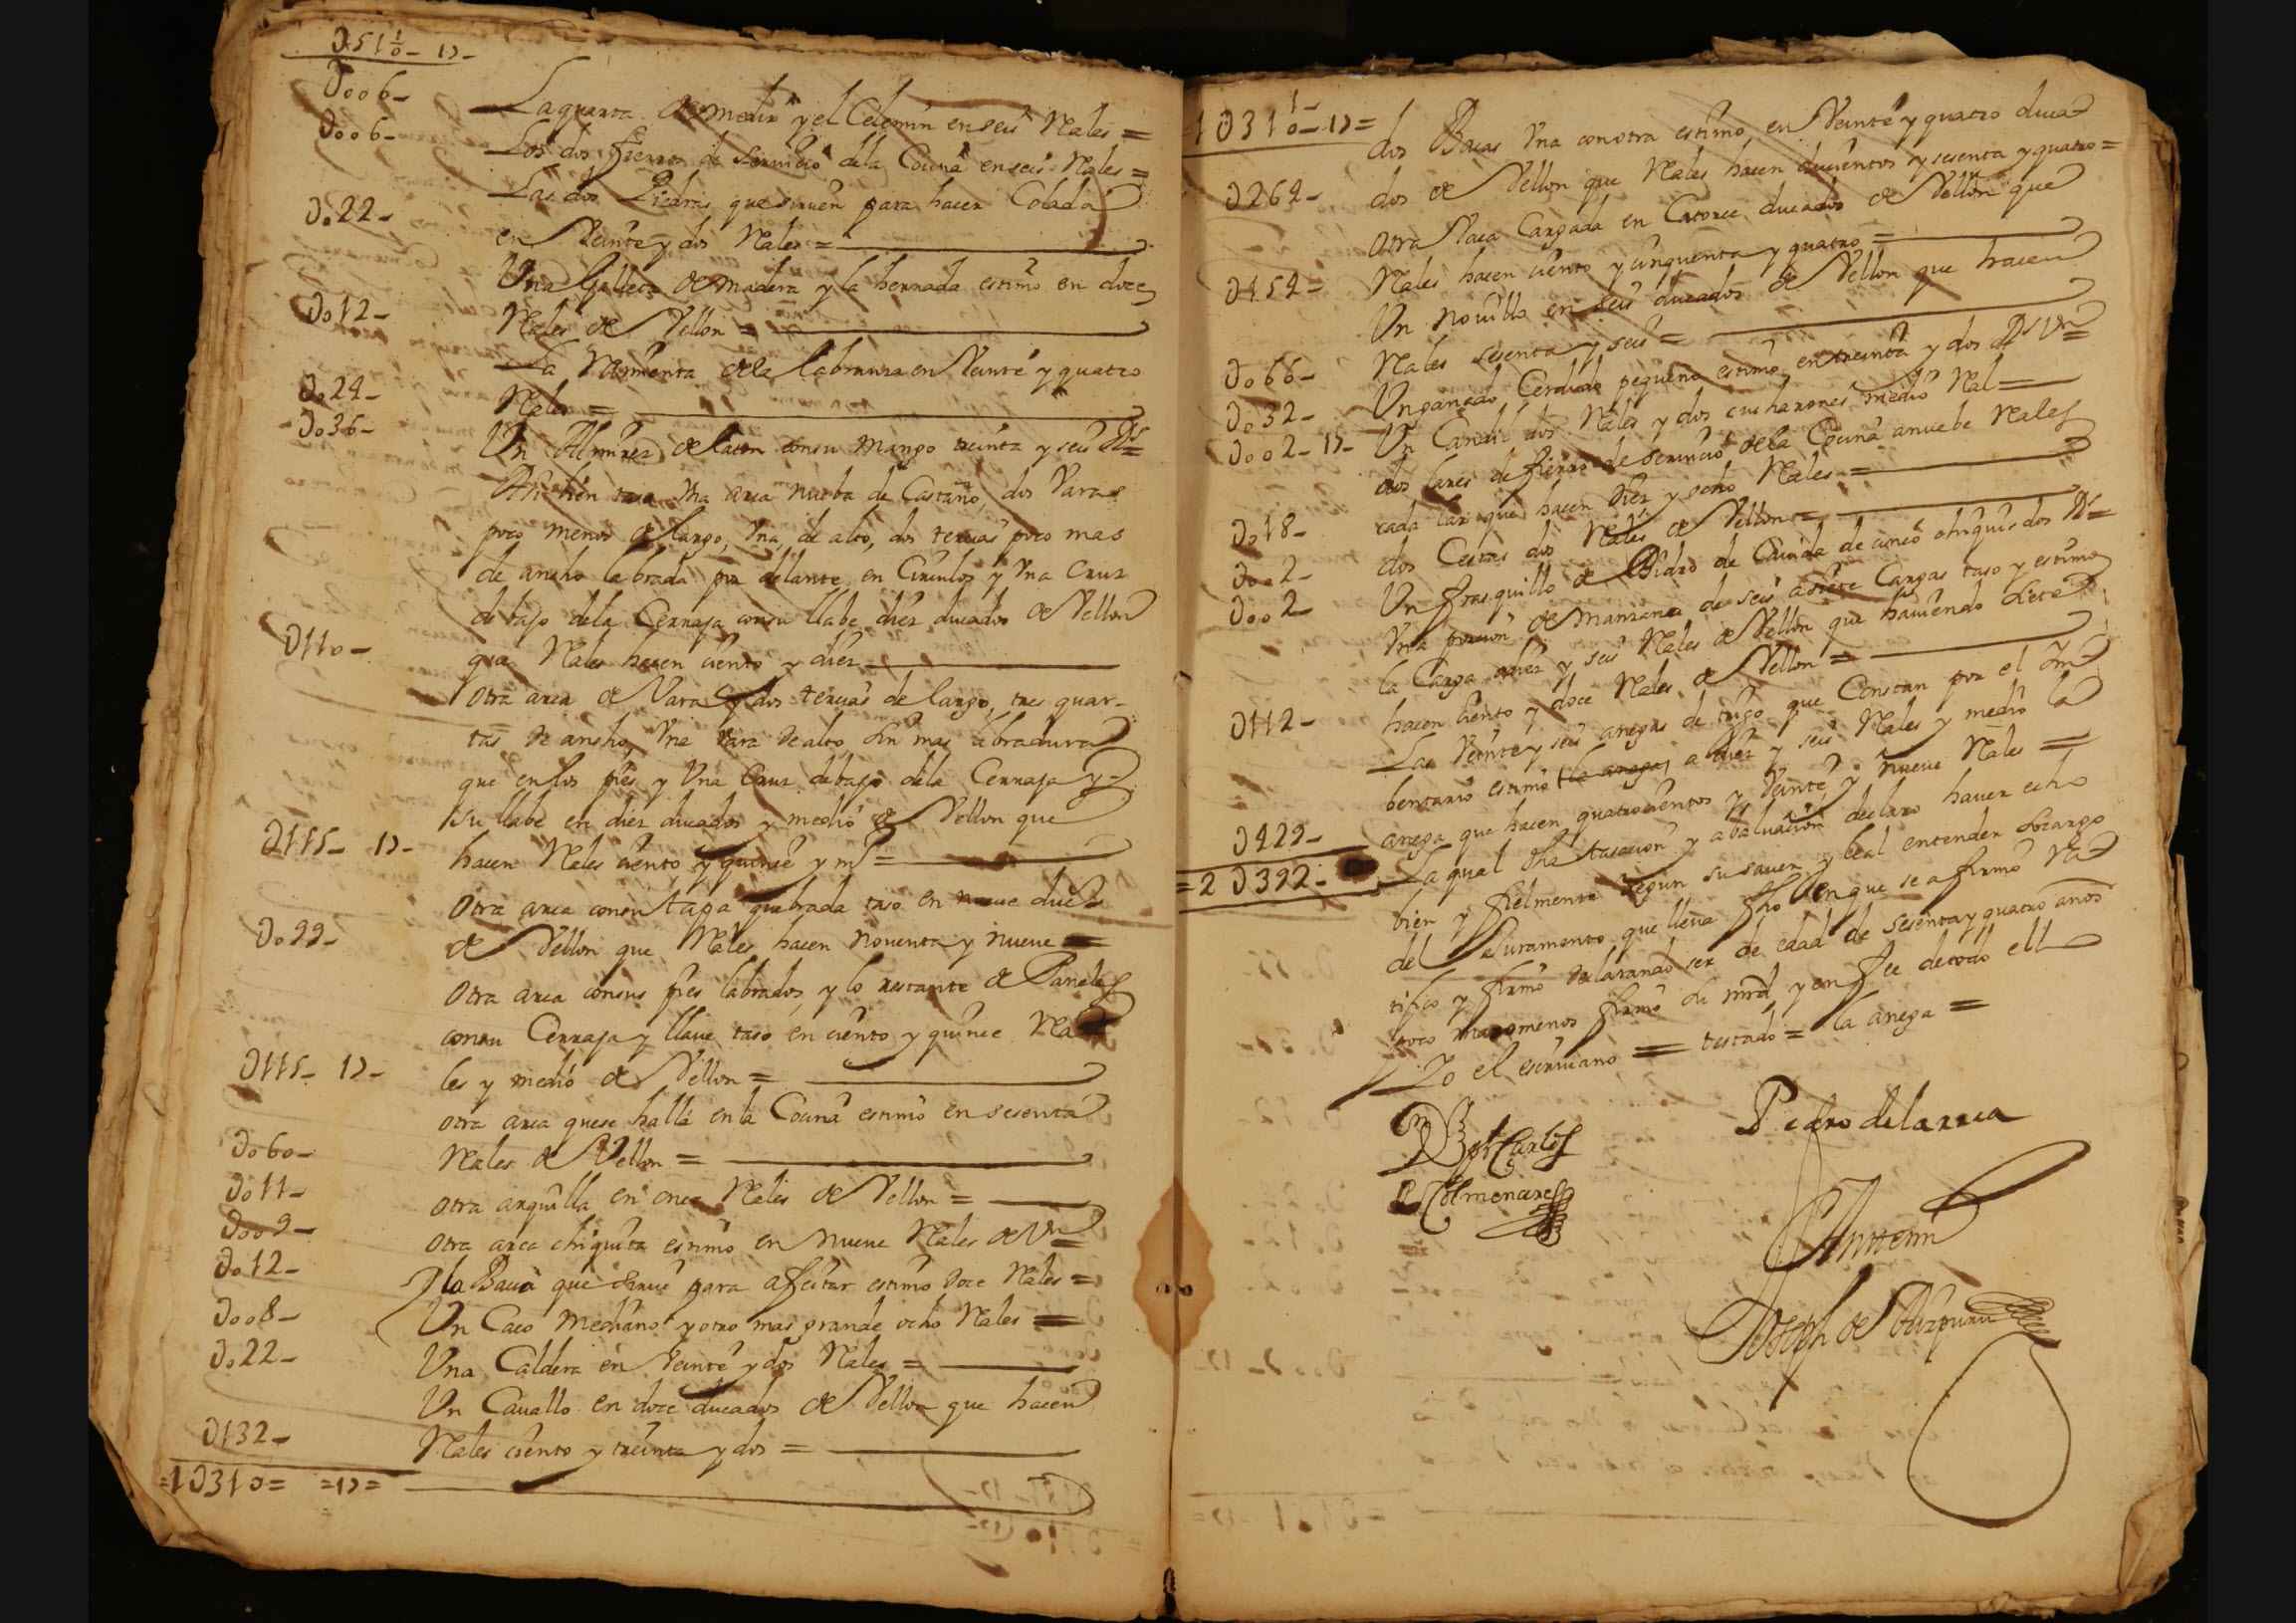 D511/0– 17–
D006– La quarta de medir y el Celemin en seis Reales =
D006– Los dos fierros de servicio de la Cocina en seis Reales =
Las dos Piedras que sirven para hacer Colada
D022– en Veinte y dos Reales =
Una Galleta de madera y la herrada estimo en doce
D012– Reales de Vellon =
La Rrmienta de la labranza en Veinte y quatro
D024– Reales =
D036– Un Almirez de laton con su mango treinta y seis Rs=
Ytt bien taso Vna arca nueba de Castaño, dos Varas
poco menos de largo, Vna, de alto, dos tercias poco mas
de ancho labrada por delante en Circulos y Vna Cruz
debajo dela Cerraja con su llabe diez ducados de Vellon
D110– que Reales hacen ciento y diez
Otra arca de Vara y dos tercias de largo, tres quar-
tas de ancho, Vna Vara de alto, sin mas labradura
que en los pies y Vna Cruz debajo dela Cerraja y
su llabe en diez ducados y medio de Vellon que
D115– 17– hacen Reales ciento y quince y mº =
Otra arca con su tapa quebrada taso en nueve ducs
D099– de Vellon que Reales hacen noventa y nueve =
Otra arca con sus pies labrados, y lo restante de Paneles
con su Cerraja y llave taso en ciento y quince Rea
D115– 17– les y medio de Vellon =
otra arca que se halla en la Cocina estimo en sesenta
D060– Reales de Vellon =
D011– otra arquilla en once Reales de Vellon =
D009– otra arca chiquita estimo en nueve Reales de Vn
D012– Y la Bacia que sirve para afeitar estimo doce Reales =
D008– Un Caço mediano y otro mas grande ocho Reales =
D022– Una Caldera en Veinte y dos Reales =
Un Cauallo en doce ducados de Vellon que hacen
D132– Reales ciento y treinta y dos =
=1D310= =17=
1D310– 17= dos Bacas Vna con otra estimo en Veinte y quatro duca
D264– dos de Vellon que Reales hacen ducientos y sesenta y quatro =
Otra Vaca Cargada en Catorce ducados de Vellon que
D154– Reales hacen ciento y cinquenta y quatro =
Un novillo en seis ducados de Vellon que hacen
D066– Reales sesenta y seis =
D032– Un ganado Cerdudo pequeño estimo en treinta y dos Rs de Vn
D002– 17– Un Candil dos Reales y dos cucharones medio Real =
dos lares de fierro de servicio dela Cocina a nuebe Reales
D018– cada lar que hacen diez y ocho Reales =
D002– dos Cestas dos Reales de Vellon =
D002– Un frasquillo de Bidro de Cauida de cinco chiquis dos Rs=
Vna porcion de manzana de seis a siete Cargas taso y estimo
la Carga a diez y seis Reales de Vellon que haviendo siete
D112– hacen ciento y doce Reales de Vellon =
Las Veinte y seis anegas de trigo que Constan por el Ym
bentario estimo la anega, a diez y seis Reales y medio la
D429– anega que hacen quatrocientos y Veinte y nueve Reales =
=2D392– La qual dha tasacion y abaluacion declaro haver echo
bien y fielmente segun su saver y leal entender so cargo
del Juramento que lleva fho en que se afirmo Ra
tifico y firmo declarando ser de edad de sesenta y quatro años
poco mas o menos firmo su mrd y en fee de todo ello
Yo el escriuano = testado = la anega =
Pedro delarrea
Carlos
Colmenares
Ante mi
Joseph de